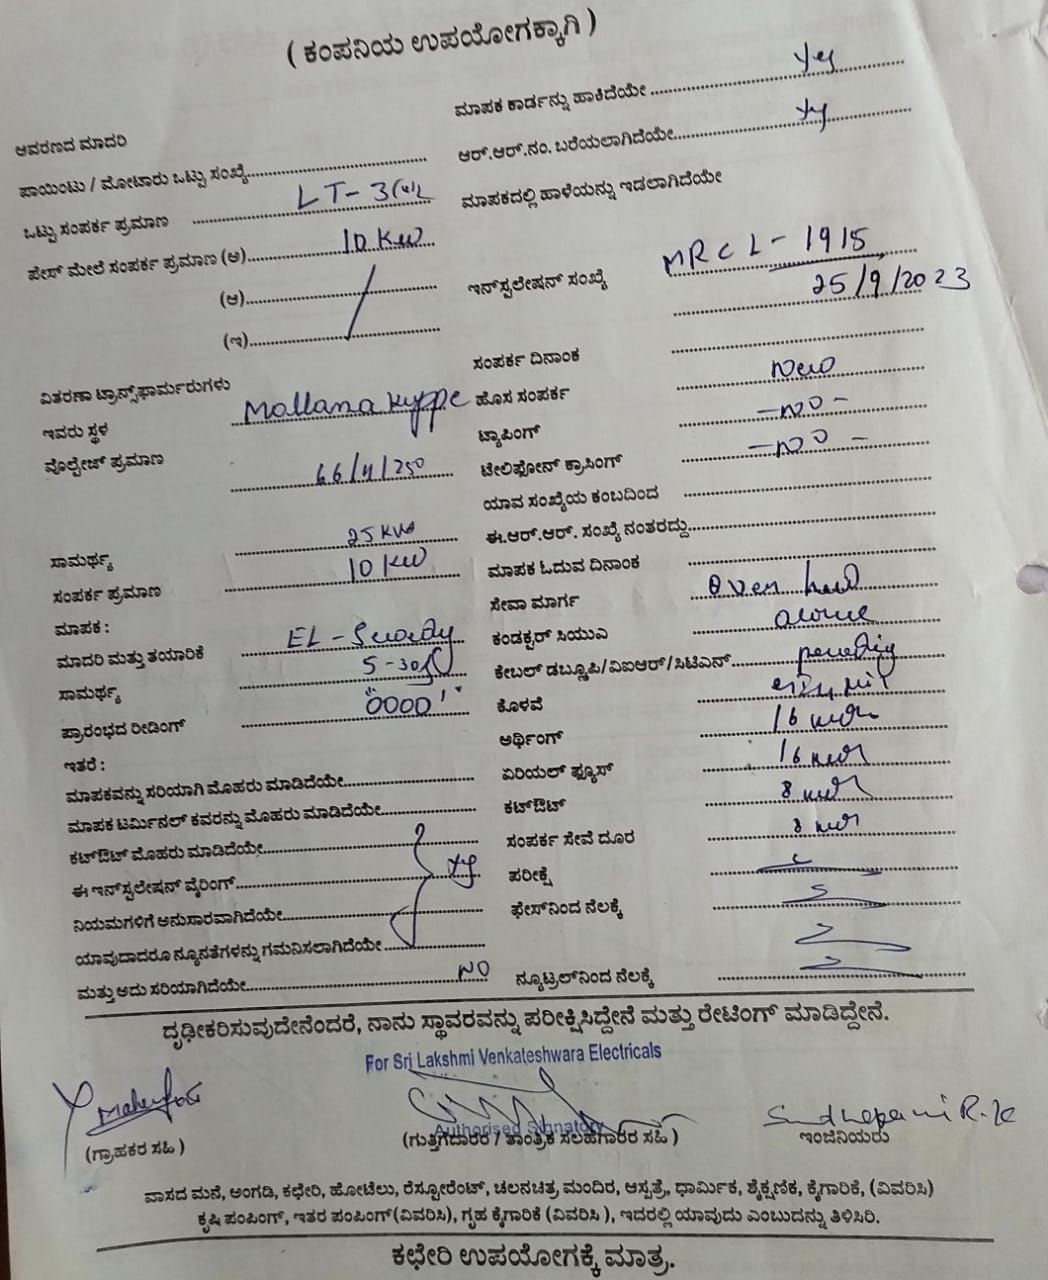 ( ಕಂಪನಿಯ ಉಪಯೋಗಕ್ಕಾಗಿ )
ಆವರಣದ ಮಾದರಿ
ಪಾಯಿಂಟು / ಮೋಟಾರು ಒಟ್ಟು ಸಂಖ್ಯೆ
ಒಟ್ಟು ಸಂಪರ್ಕ ಪ್ರಮಾಣ LT-3
ಪೇಸ್ ಮೇಲೆ ಸಂಪರ್ಕ ಪ್ರಮಾಣ (ಅ) 10 KW
(ಆ)
(ಇ)
ವಿತರಣಾ ಟ್ರಾನ್ಸ್‌ಫಾರ್ಮರುಗಳು
ಇವರು ಸ್ಥಳ Mallana kuppe
ವೊಲ್ಟೇಜ್ ಪ್ರಮಾಣ 66/11/250
ಸಾಮರ್ಥ್ಯ 25 KVA
ಸಂಪರ್ಕ ಪ್ರಮಾಣ 10 KW
ಮಾಪಕ :
ಮಾದರಿ ಮತ್ತು ತಯಾರಿಕೆ EL-Swedy
ಸಾಮರ್ಥ್ಯ 5-30
ಪ್ರಾರಂಭದ ರೀಡಿಂಗ್ "0000"
ಇತರೆ :
ಮಾಪಕವನ್ನು ಸರಿಯಾಗಿ ಮೊಹರು ಮಾಡಿದೆಯೇ
ಮಾಪಕ ಟರ್ಮಿನಲ್ ಕವರನ್ನು ಮೊಹರು ಮಾಡಿದೆಯೇ
ಕಟ್‌ಔಟ್ ಮೊಹರು ಮಾಡಿದೆಯೇ
ಈ ಇನ್‌ಸ್ಟಲೇಷನ್ ವೈರಿಂಗ್ yes
ನಿಯಮಗಳಿಗೆ ಅನುಸಾರವಾಗಿದೆಯೇ
ಯಾವುದಾದರೂ ನ್ಯೂನತೆಗಳನ್ನು ಗಮನಿಸಲಾಗಿದೆಯೇ
ಮತ್ತು ಅದು ಸರಿಯಾಗಿದೆಯೇ NO
ಮಾಪಕ ಕಾರ್ಡನ್ನು ಹಾಕಿದೆಯೇ yes
ಆರ್.ಆರ್.ನಂ. ಬರೆಯಲಾಗಿದೆಯೇ yes
ಮಾಪಕದಲ್ಲಿ ಹಾಳೆಯನ್ನು ಇಡಲಾಗಿದೆಯೇ
ಇನ್‌ಸ್ಟಲೇಷನ್ ಸಂಖ್ಯೆ MRCL-1915
25/9/2023
ಸಂಪರ್ಕ ದಿನಾಂಕ
ಹೊಸ ಸಂಪರ್ಕ New
ಟ್ಯಾಪಿಂಗ್ -NO-
ಟೇಲಿಫೋನ್ ಕ್ರಾಸಿಂಗ್ -NO-
ಯಾವ ಸಂಖ್ಯೆಯ ಕಂಬದಿಂದ
ಈ.ಆರ್.ಆರ್. ಸಂಖ್ಯೆ ನಂತರದ್ದು
ಮಾಪಕ ಓದುವ ದಿನಾಂಕ
ಸೇವಾ ಮಾರ್ಗ Over head
ಕಂಡಕ್ಟರ್ ಸಿಯುಎ
ಕೇಬಲ್ ಡಬ್ಲ್ಯೂಪಿ/ವಿಐಆರ್/ಸಿಟಿಎಸ್
ಕೊಳವೆ
ಅರ್ಥಿಂಗ್ 16
ಏರಿಯಲ್ ಫ್ಯೂಸ್ 16
ಕಟ್‌ಔಟ್ 8
ಸಂಪರ್ಕ ಸೇವೆ ದೂರ 8
ಪರೀಕ್ಷೆ
ಫೇಸ್‌ನಿಂದ ನೆಲಕ್ಕೆ
ನ್ಯೂಟ್ರಲ್‌ನಿಂದ ನೆಲಕ್ಕೆ
ದೃಢೀಕರಿಸುವುದೇನೆಂದರೆ, ನಾನು ಸ್ಥಾವರವನ್ನು ಪರೀಕ್ಷಿಸಿದ್ದೇನೆ ಮತ್ತು ರೇಟಿಂಗ್ ಮಾಡಿದ್ದೇನೆ.
For Sri Lakshmi Venkateshwara Electricals
Authorised Signatory
(ಗ್ರಾಹಕರ ಸಹಿ) (ಗುತ್ತಿಗೆದಾರರ / ತಾಂತ್ರಿಕ ಸಲಹೆಗಾರರ ಸಹಿ) ಇಂಜಿನಿಯರು
ವಾಸದ ಮನೆ, ಅಂಗಡಿ, ಕಛೇರಿ, ಹೋಟೆಲು, ರೆಸ್ಟೋರೆಂಟ್, ಚಲನಚಿತ್ರ ಮಂದಿರ, ಆಸ್ಪತ್ರೆ, ಧಾರ್ಮಿಕ, ಶೈಕ್ಷಣಿಕ, ಕೈಗಾರಿಕೆ, (ವಿವರಿಸಿ)
ಕೃಷಿ ಪಂಪಿಂಗ್, ಇತರ ಪಂಪಿಂಗ್(ವಿವರಿಸಿ), ಗೃಹ ಕೈಗಾರಿಕೆ (ವಿವರಿಸಿ), ಇದರಲ್ಲಿ ಯಾವುದು ಎಂಬುದನ್ನು ತಿಳಿಸಿರಿ.
ಕಛೇರಿ ಉಪಯೋಗಕ್ಕೆ ಮಾತ್ರ.